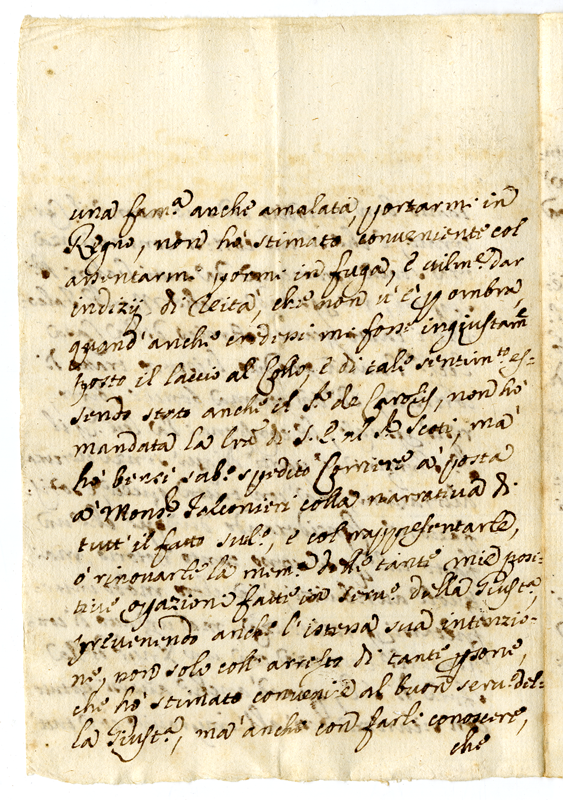 una fam.ª anche amalata, portarmi in
Regno, non hò stimato conveniente col
assentarmi pormi in fuga, e vilm.e dar
indizij di reità, che non v'è p ombra,
quand'anche credessi mi fosse ingiustam.e
posto il laccio al Collo, e di tale sentim.to es-
sendo stato anche il S.r de Carolis, non hò
mandata la lrã di S. E. al S.r Scoti, mà
hò bensì sab.º spedito Corriere à posta
à Mons.r Falconieri colla narrativa di
tutt'il fatto sud.º, e col rappresentarle,
ò rinovarle la mem.ª delle tante mie posi-
tive operazioni fatte in serv.º della Giust.ª,
prevenendo anche l'istessa sua intenzio-
ne, non solo coll'arresto di tante psone,
che hò stimato convenire al buon serv.º del-
la Giust.ª, mà anche con farli conoscere,
che